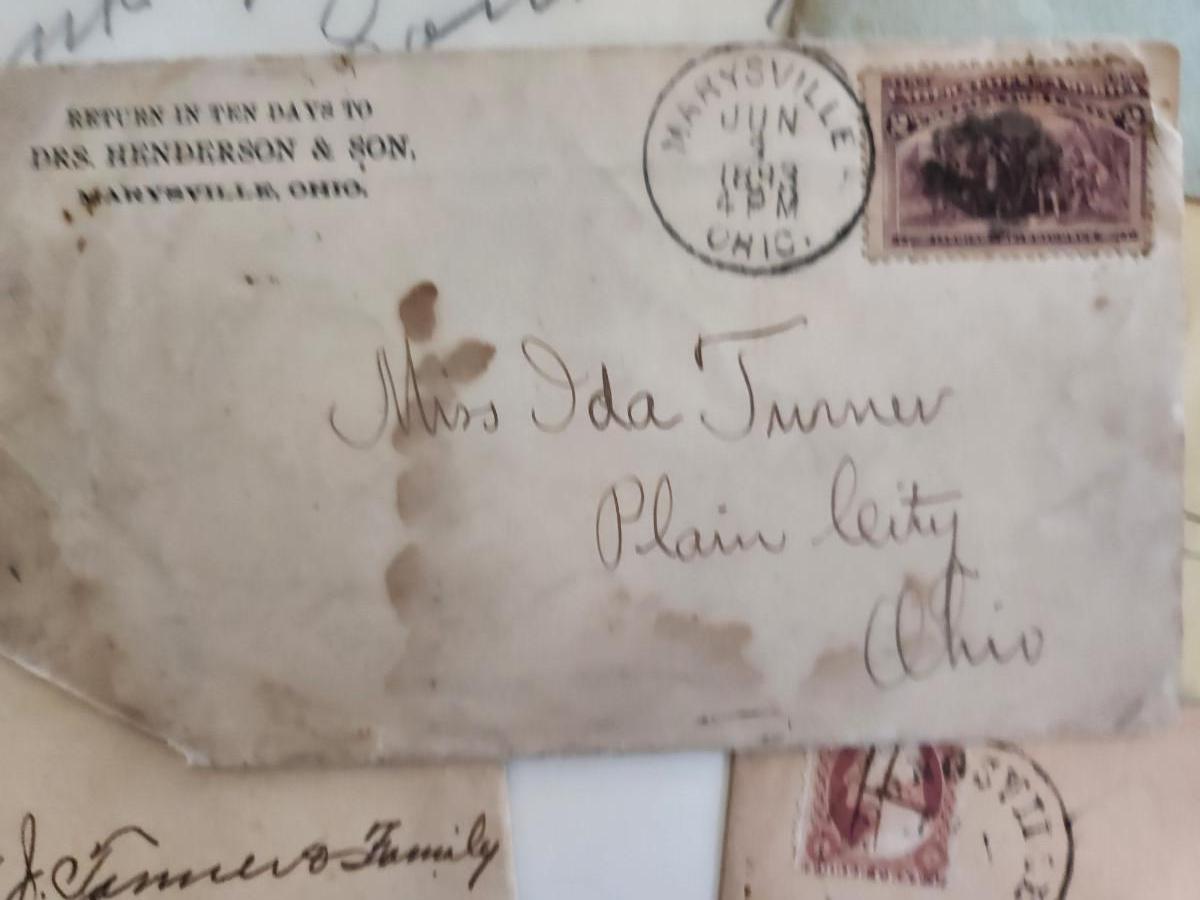 RETURN IN TEN DAYS TO
DRS. HENDERSON & SON,
MARYSVILLE, OHIO.
MARYSVILLE
JUN
1893
4PM
OHIO.
Miss Ida Turner
Plain City
Ohio
J. Turner & Family